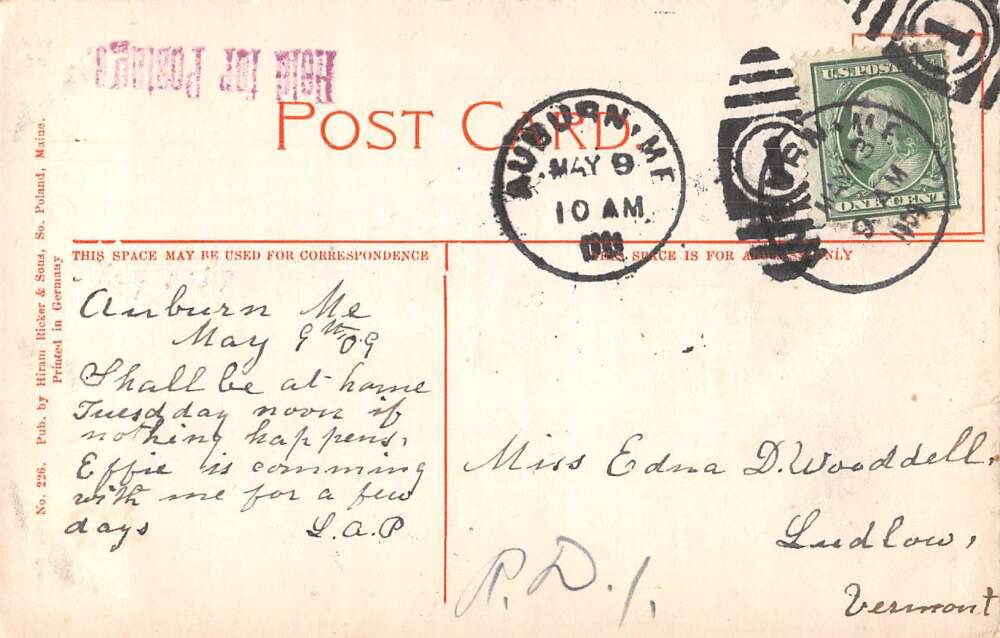 Held for Postage.
POST CARD
AUBURN, ME
MAY 9
10 AM
1909
1
1
U.S. POSTAGE
ONE CENT
AM
THIS SPACE MAY BE USED FOR CORRESPONDENCE
THIS SPACE IS FOR ADDRESS ONLY
No. 226. Pub. by Hiram Ricker & Sons, So. Poland, Maine.
Printed in Germany
Auburn Me
May 9th 09
Shall be at home
Tuesdday noon if
nothing happens,
Effie is comming
with me for a few
days L.A.P
Miss Edna D. Wooddell,
Ludlow,
Vermont
R.D.1.